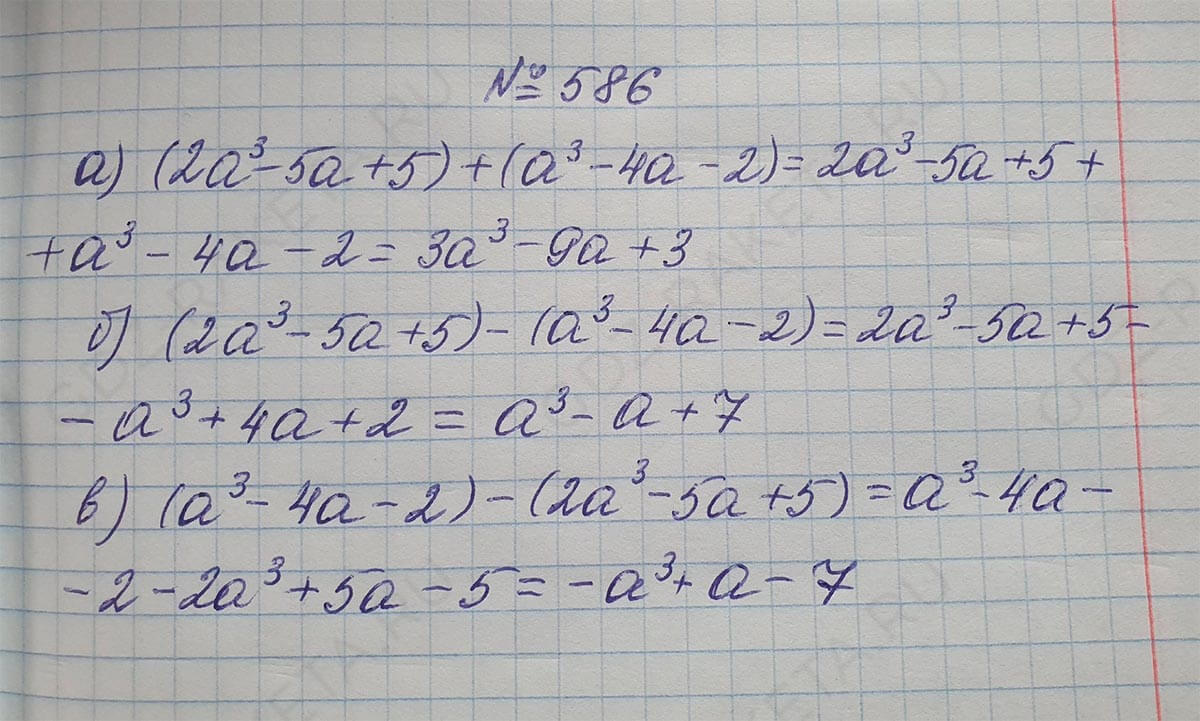 № 586
а) (2a³-5a+5)+(a³-4a-2)=2a³-5a+5+
+a³-4a-2=3a³-9a+3
б) (2a³-5a+5)-(a³-4a-2)=2a³-5a+5-
-a³+4a+2=a³-a+7
в) (a³-4a-2)-(2a³-5a+5)=a³-4a-
-2-2a³+5a-5=-a³+a-7